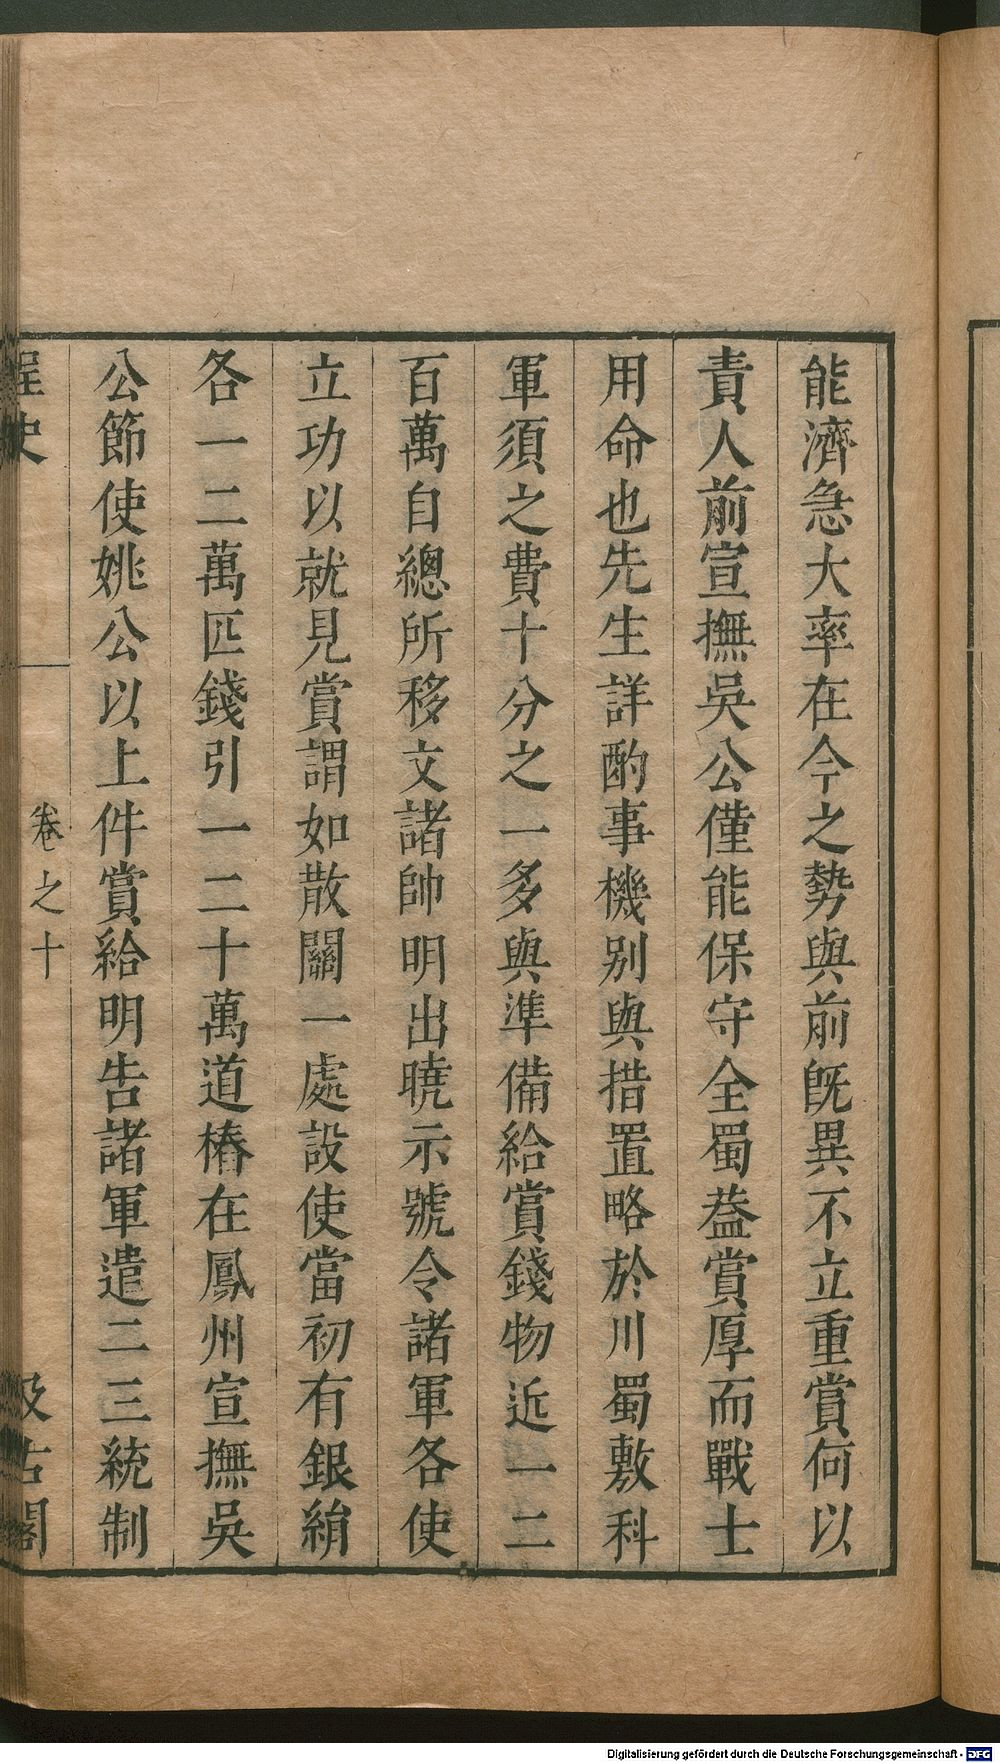 能濟急大率在今之勢與前旣異不立重賞何以
責人前宣撫吳公僅能保守全蜀葢賞厚而戰士
用命也先生詳酌事機别與措置略於川蜀敷科
軍須之費十分之一多與準備給賞錢物近一二
百萬自總所移文諸帥明出曉示號令諸軍各使
立功以就見賞謂如散關一處設使當初有銀絹
各一二萬匹錢引一二十萬道樁在鳳州宣撫吳
公節使姚公以上件賞給明告諸軍遣二三統制
桯史
卷之十
汲古閣
Digitalisierung gefördert durch die Deutsche Forschungsgemeinschaft - DFG